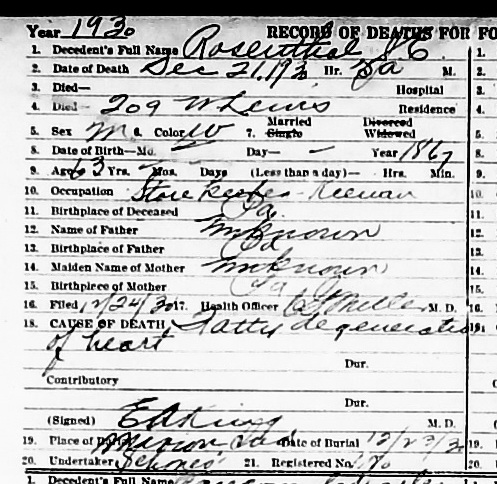 Year 1930 RECORD OF DEATHS FOR FO
1. Decedent's Full Name Rosenthal
2. Date of Death Dec 21, 193 Hr. 5a M.
3. Died— Hospital
4. Died— 209 W Lewis Residence
5. Sex M 6. Color W 7. Married Single Divorced Widowed
8. Date of Birth—Mo. — Day— — Year 1867
9. Age 63 Yrs. — Mos. Days (Less than a day)— Hrs. Min.
10. Occupation Store Keeper
11. Birthplace of Deceased Pa.
12. Name of Father Unknown
13. Birthplace of Father Pa
14. Maiden Name of Mother Unknown
15. Birthplace of Mother Pa
16. Filed 12/24/30 17. Health Officer M. D.
18. CAUSE OF DEATH, Fatty degeneratio
of heart
Dur.
Contributory
Dur.
(Signed) E A King M. D.
19. Place of Burial Marion Ind Date of Burial 12/23/3
20. Undertaker 21. Registered No.
1. Decedent's Full Name